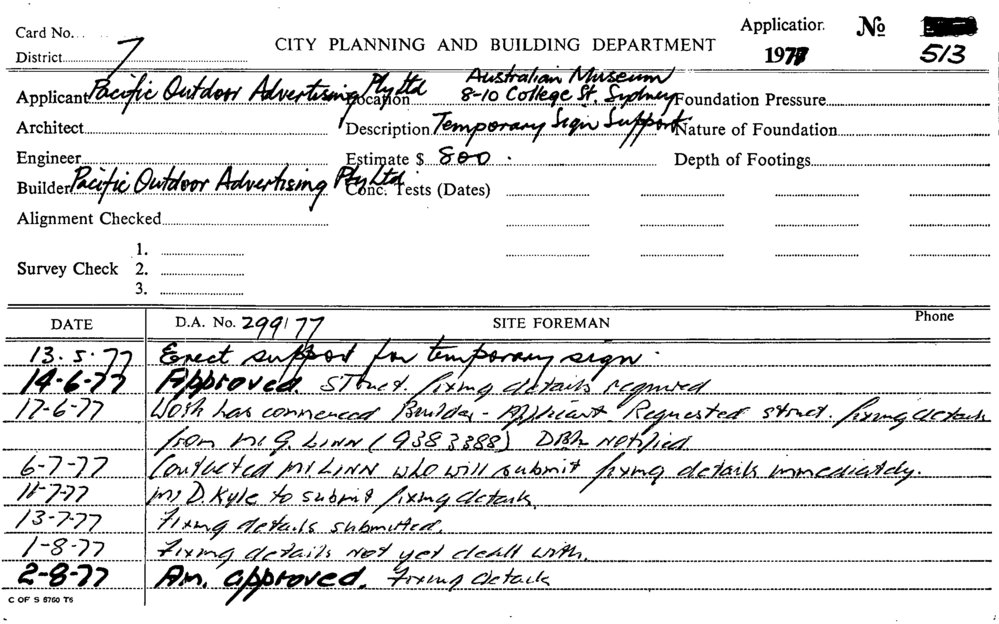 Card No.
CITY PLANNING AND BUILDING DEPARTMENT
Application No
District 7
1977 513
Applicant Pacific Outdoor Advertising Pty Ltd Location Australian Museum 8-10 College St. Sydney Foundation Pressure
Architect Description Temporary Sign Support Nature of Foundation
Engineer Estimate $ 800. Depth of Footings
Builder Pacific Outdoor Advertising Pty Ltd Conc. Tests (Dates)
Alignment Checked
1.
Survey Check 2.
3.
DATE D.A. No. 299/77 SITE FOREMAN Phone
13.5.77 Erect support for temporary sign.
14-6-77 Approved. Struct. fixing details required
17-6-77 Work has commenced Builder - Applicant Requested struct. fixing details
from Mr G. Linn (938 3388) DBLr Notified
6-7-77 Contacted Mr LINN who will submit fixing details immediately.
11-7-77 Mr D. Kyle to submit fixing details
13-7-77 Fixing details submitted.
1-8-77 Fixing details not yet dealt with.
2-8-77 Am. approved. Fixing details
C OF S 6760 T6